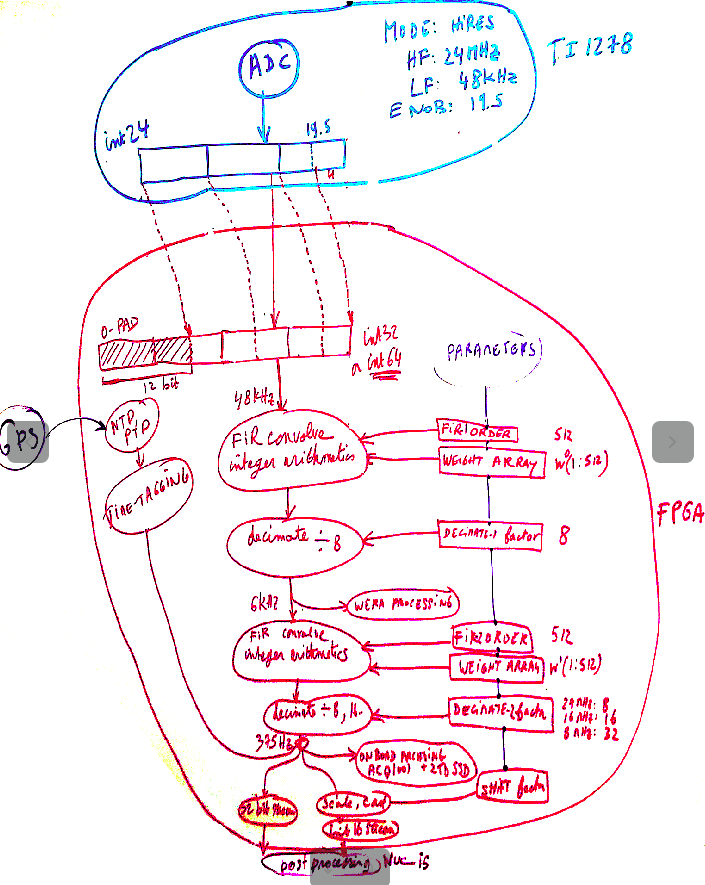 MODE: HiRES
HF: 24MHz
LF: 48kHz
ENOB: 19.5
TI 1278
ADC
int24
19.5
0-PAD
12 bit
int32
int64
PARAMETERS
48kHz
GPS
NTP
PTP
FIR convolve
integer arithmetics
FIR1 ORDER
512
WEIGHT ARRAY
W(1:512)
TIME-TAGGING
FPGA
decimate ÷ 8
DECIMATE-1 factor
8
6kHz
WERA PROCESSING
FIR convolve
integer arithmetics
FIR2 ORDER
512
WEIGHT ARRAY
W'(1:512)
decimate ÷ 8,
DECIMATE-2 factor
24MHz: 8
16MHz: 16
8MHz: 32
375Hz
ONBOARD ARCHIVING
+ 2TB SSD
SHIFT factor
32 bit stream
scale,
16 stream
post processing,